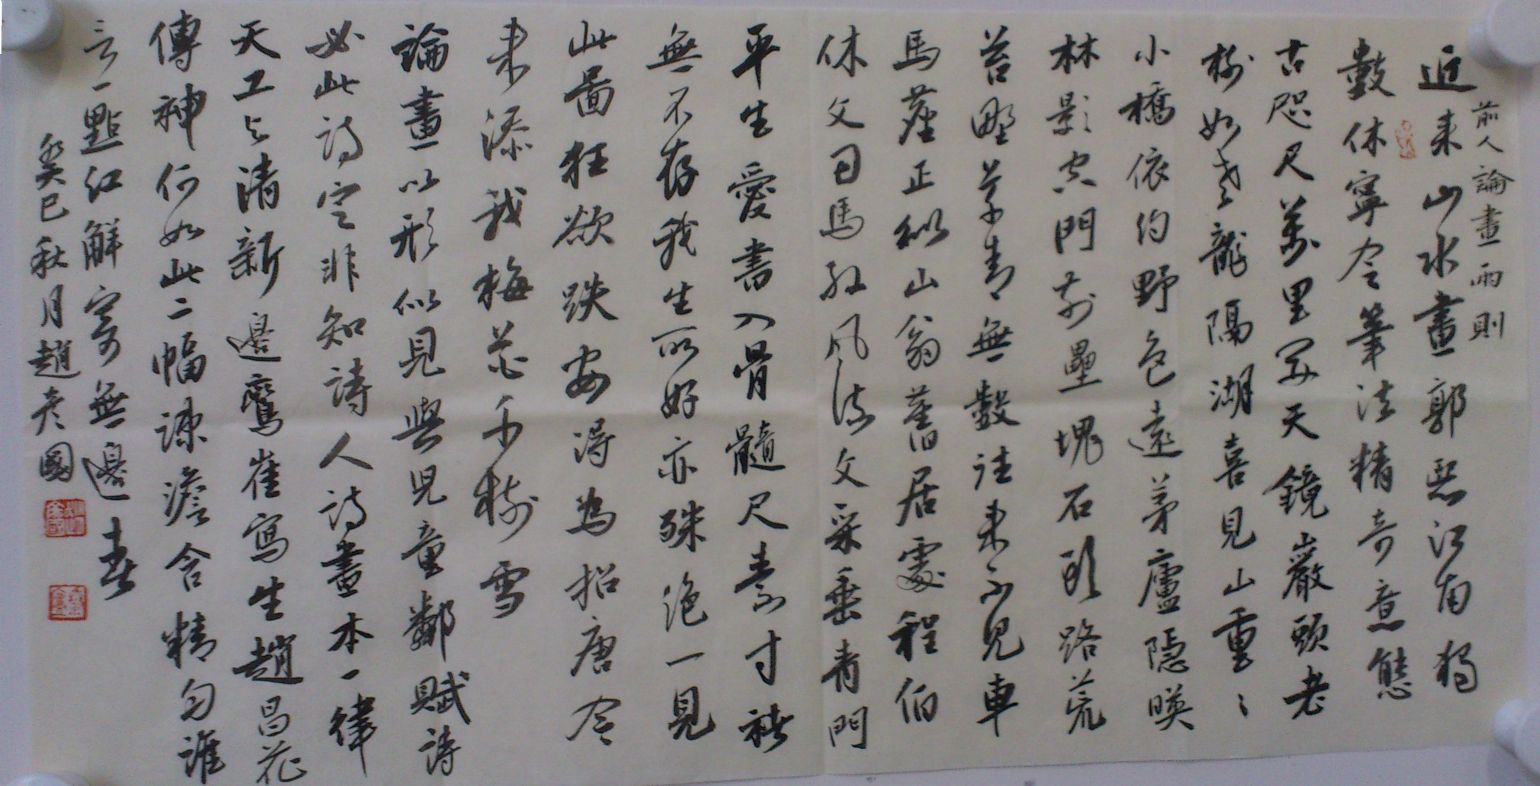 前人論畫兩則
近来山水畫郭熙江南獨
數休寧令筆法精奇意態
古咫尺萬里寫天鏡巖頭老
樹如老龍隔湖喜見山重〻
小橋依約野色遠茅廬隱暎
林影空門前壘塊石頭路荒
苔野草青無數往来不見車
馬塵正似山翁舊居處程伯
休父司馬孫風流文采垂青門
平生愛書入骨髓尺素寸紙
無不存我生所好亦殊絶一見
此啚狂欲跌安得為招唐令
来添我梅花千樹雪
論畫以形似見與兒童鄰賦詩
必此詩定非知詩人詩畫本一律
天工与清新邊鸞雀寫生趙昌花
傳神何如此二幅疎澹含精勻誰
言一點红解寄無邊春
癸巳秋月趙彦國